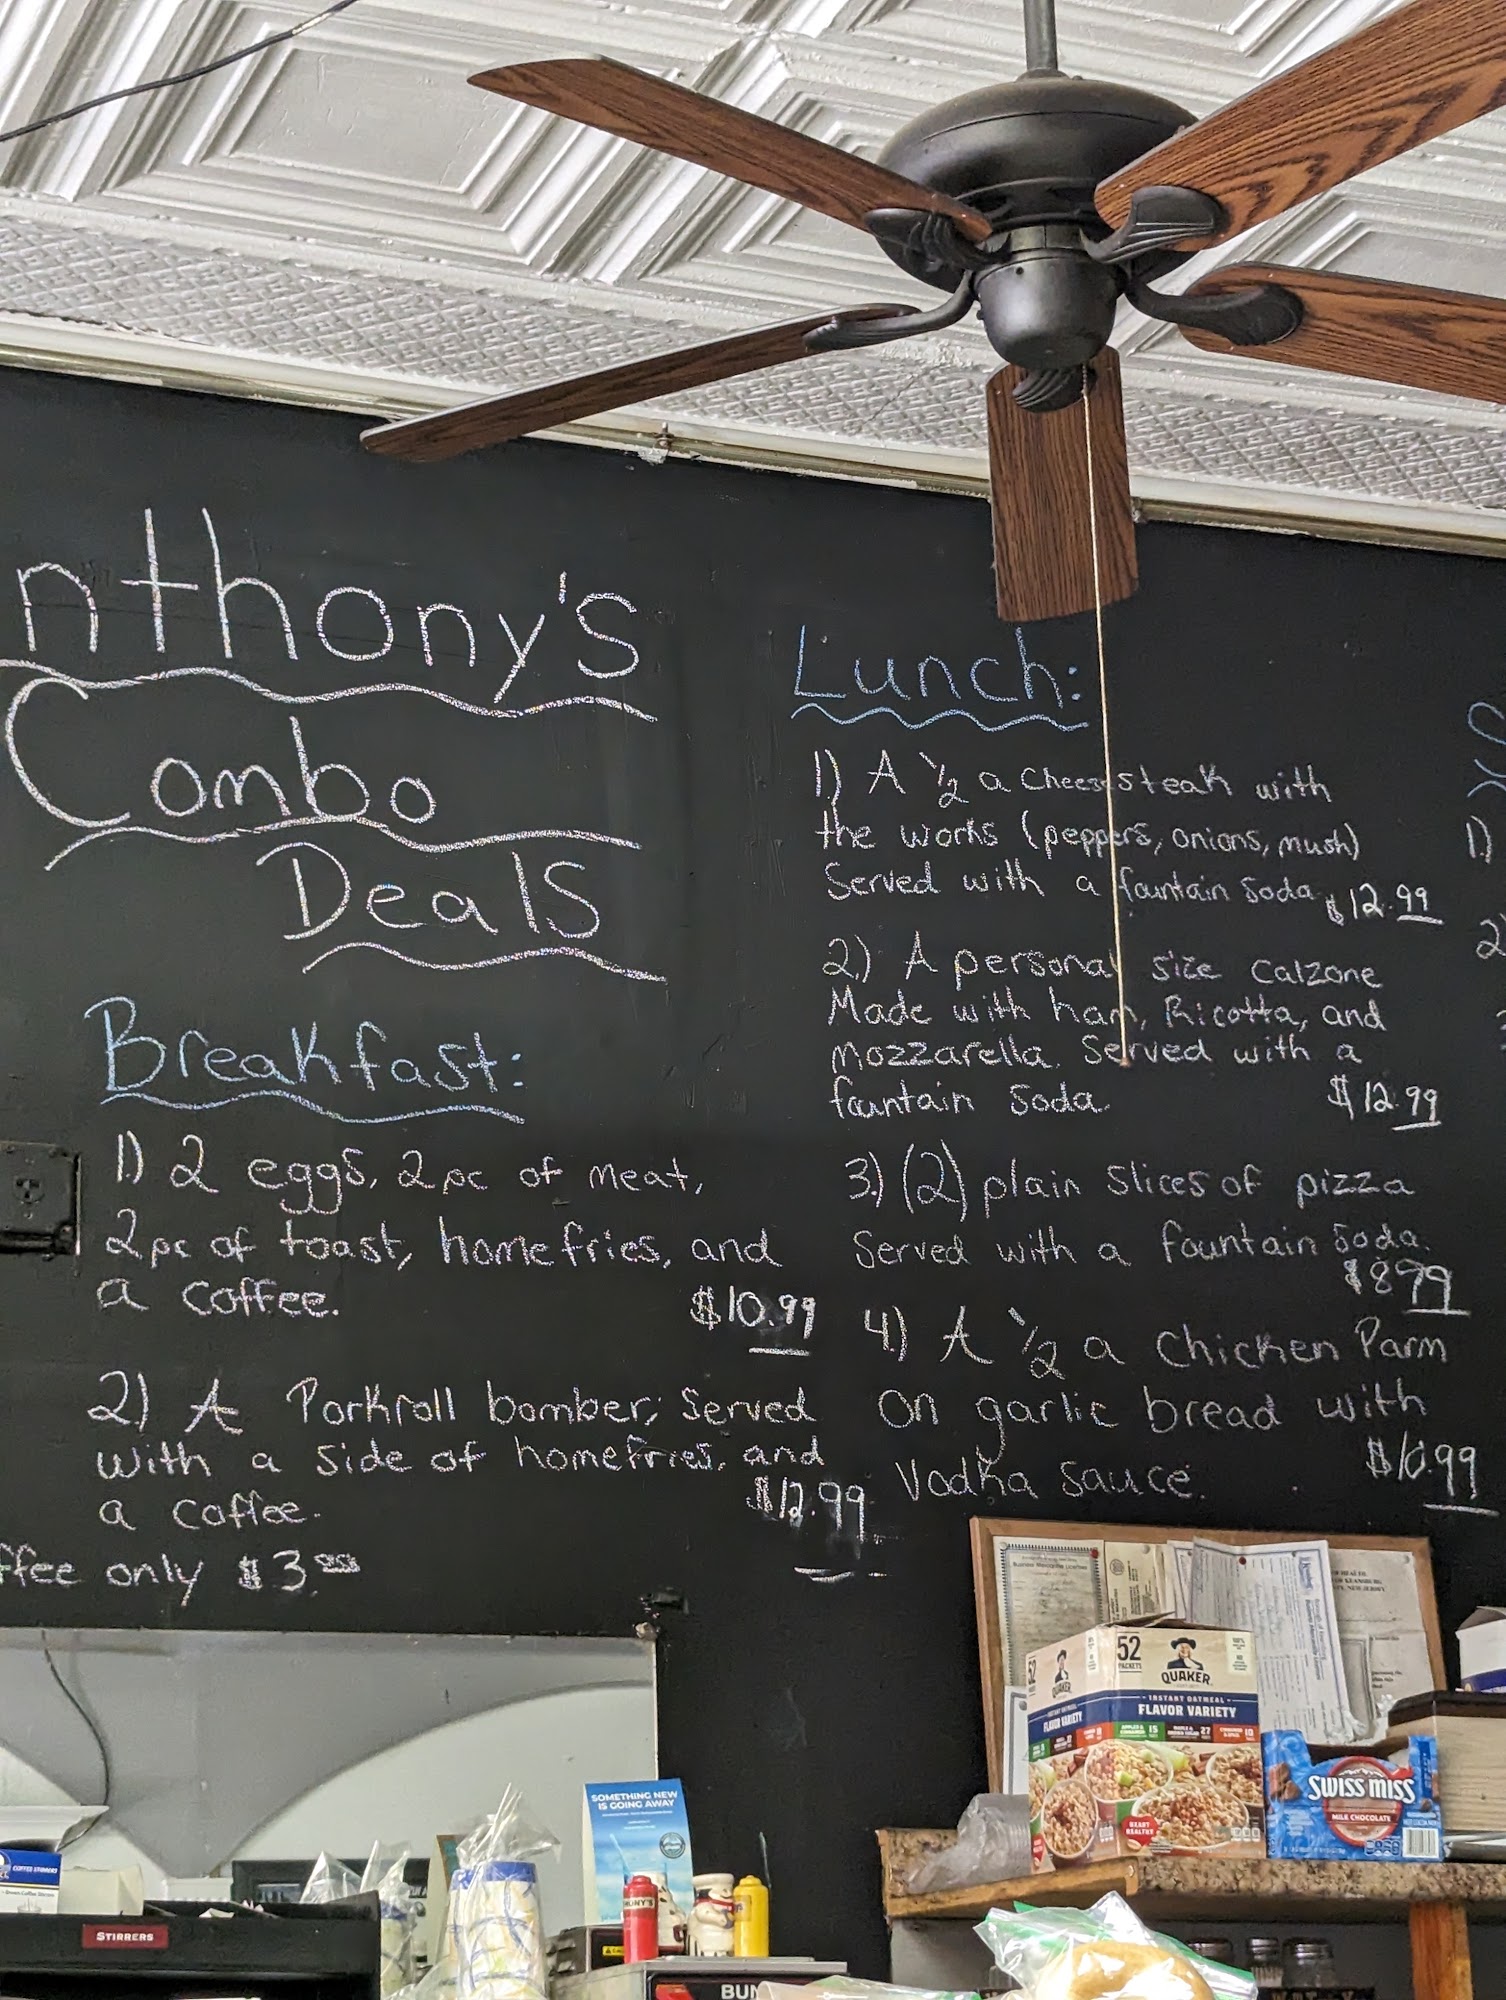 nthony's
Combo
Deals
Breakfast:
1.) 2 eggs, 2pc of meat,
2pc of toast, homefries, and
a coffee.
$10.99
2) A Porkroll bomber; Served
with a side of homefries, and
a coffee.
$12.99
ffee only $3.00
Lunch:
1) A 1/2 a cheesesteak with
the works (peppers, onions, mush)
Served with a fountain soda
$12.99
2.) A personal size Calzone
Made with ham, Ricotta, and
mozzarella. Served with a
fountain soda.
$12.99
3.) (2) plain slices of pizza
Served with a fountain soda.
$8.99
4.) A 1/2 a Chicken Parm
on garlic bread with
Vodka sauce.
$10.99
1.)
2)
52
PACKETS
QUAKER
INSTANT OATMEAL
FLAVOR VARIETY
HEART
HEALTHY
SWISS MISS
MILK CHOCOLATE
SOMETHING NEW
IS GOING AWAY
COFFEE STIRRERS
STIRRERS
BUN